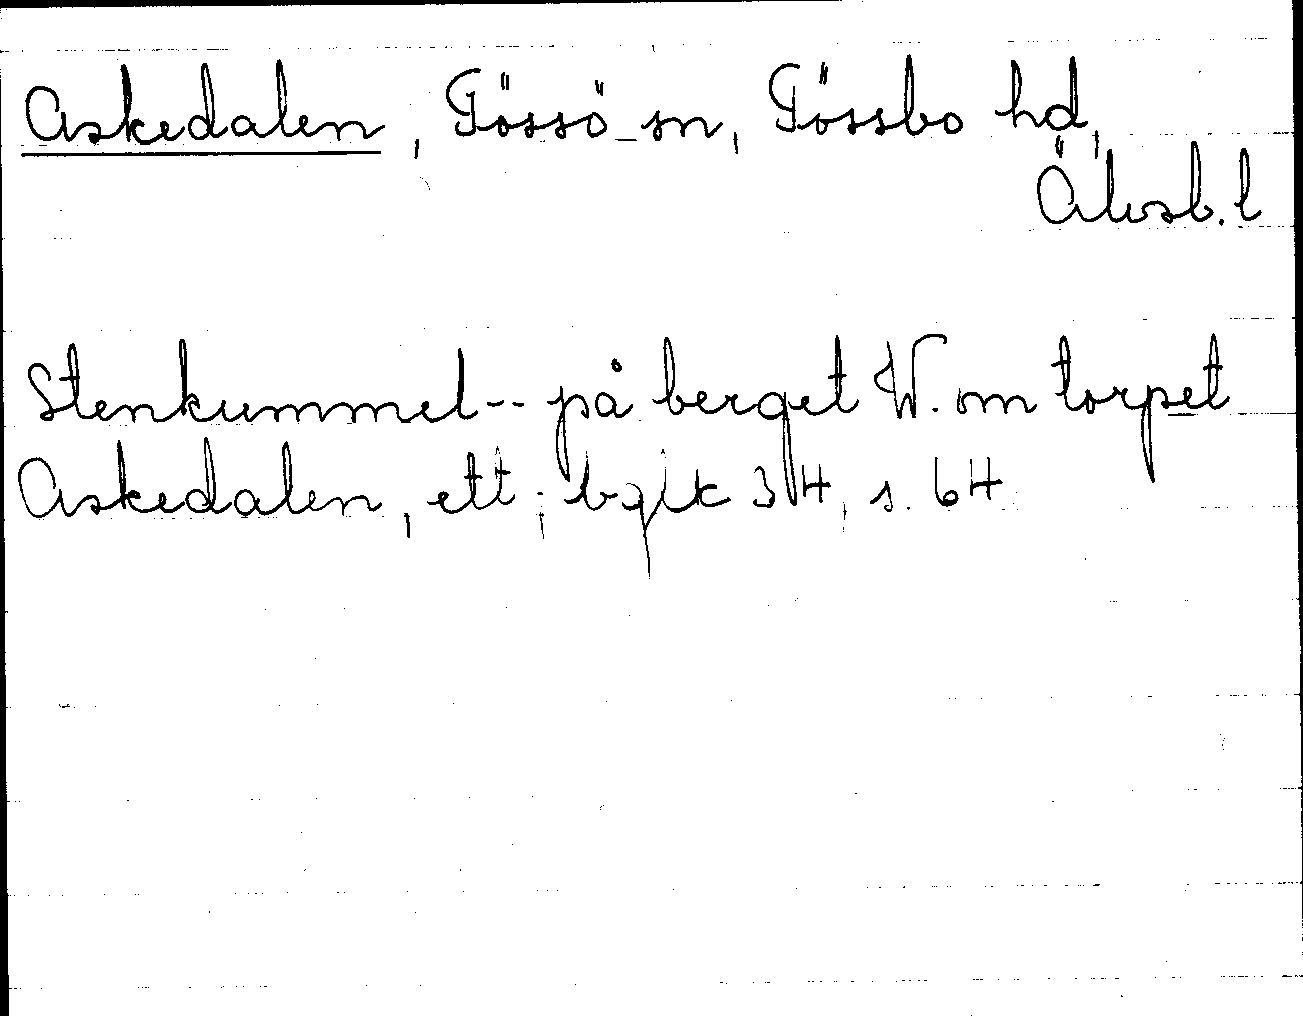 Askedalen, Tössö sn, Tössbo hd,
Älvsb. l
Stenkummel -- på berget W. om torpet
Askedalen, ett; bgik 3H, s. 64